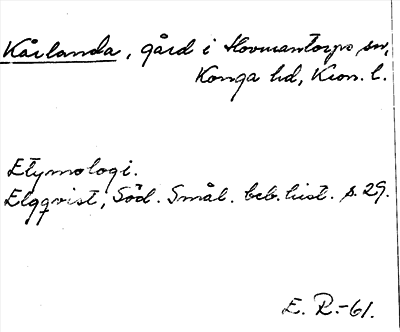 Kårlanda, gård i Hovmantorps sn,
Konga hd, Kron. l.
Etymologi.
Elgqvist, Söd. Smål. beb. hist. s. 29.
E. R.-61.